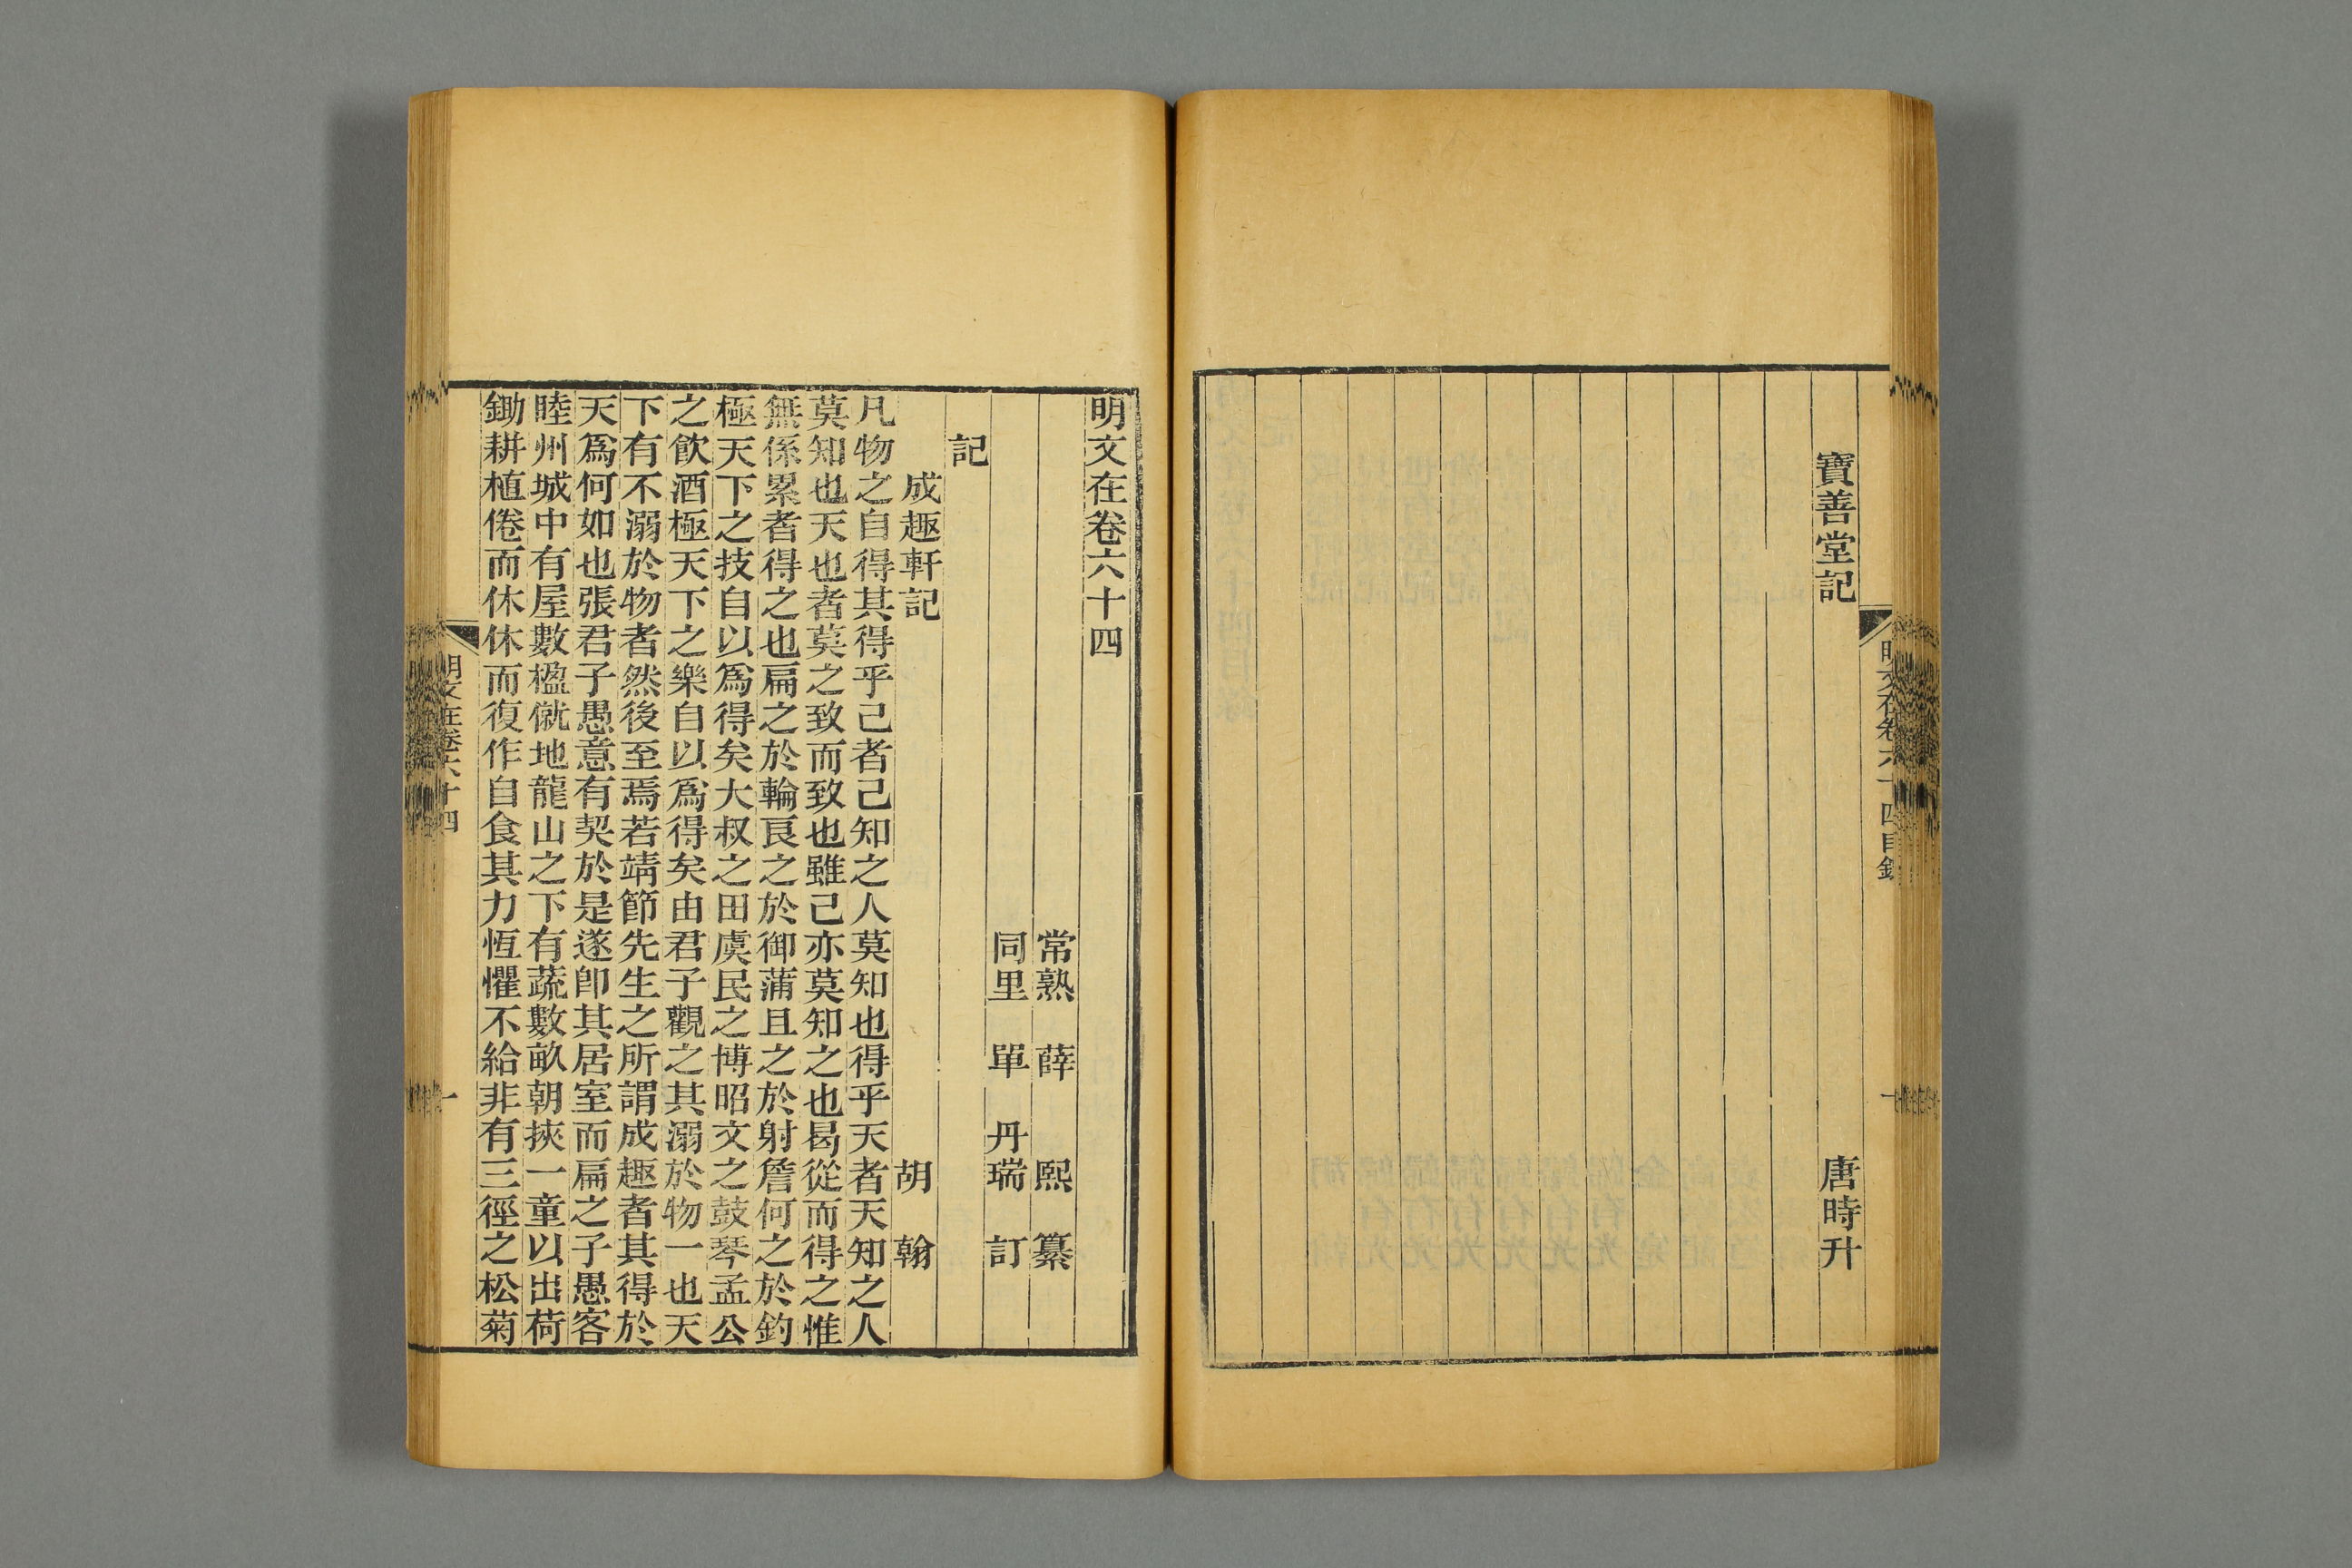 寶善堂記 唐時升
明文在卷六十四目錄
一
明文在卷六十四
常熟 薛 熙 纂
同里 單 丹瑞 訂
記
成趣軒記 胡 翰
凡物之自得其得乎己者己知之人莫知也得乎天者天知之人
莫知也天也者莫之致而致也雖己亦莫知之也曷從而得之惟
無係累者得之也扁之於輪良之於御蒲且之於射詹何之於釣
極天下之技自以爲得矣大叔之田虞民之博昭文之鼓琴孟公
之飮酒極天下之樂自以爲得矣由君子觀之其溺於物一也天
下有不溺於物者然後至焉若靖節先生之所謂成趣者其得於
天爲何如也張君子愚意有契於是遂卽其居室而扁之子愚客
睦州城中有屋數楹僦地龍山之下有蔬數畝朝挾一童以出荷
鋤耕植倦而休休而復作自食其力恆懼不給非有三徑之松菊
明文在卷六十四
一